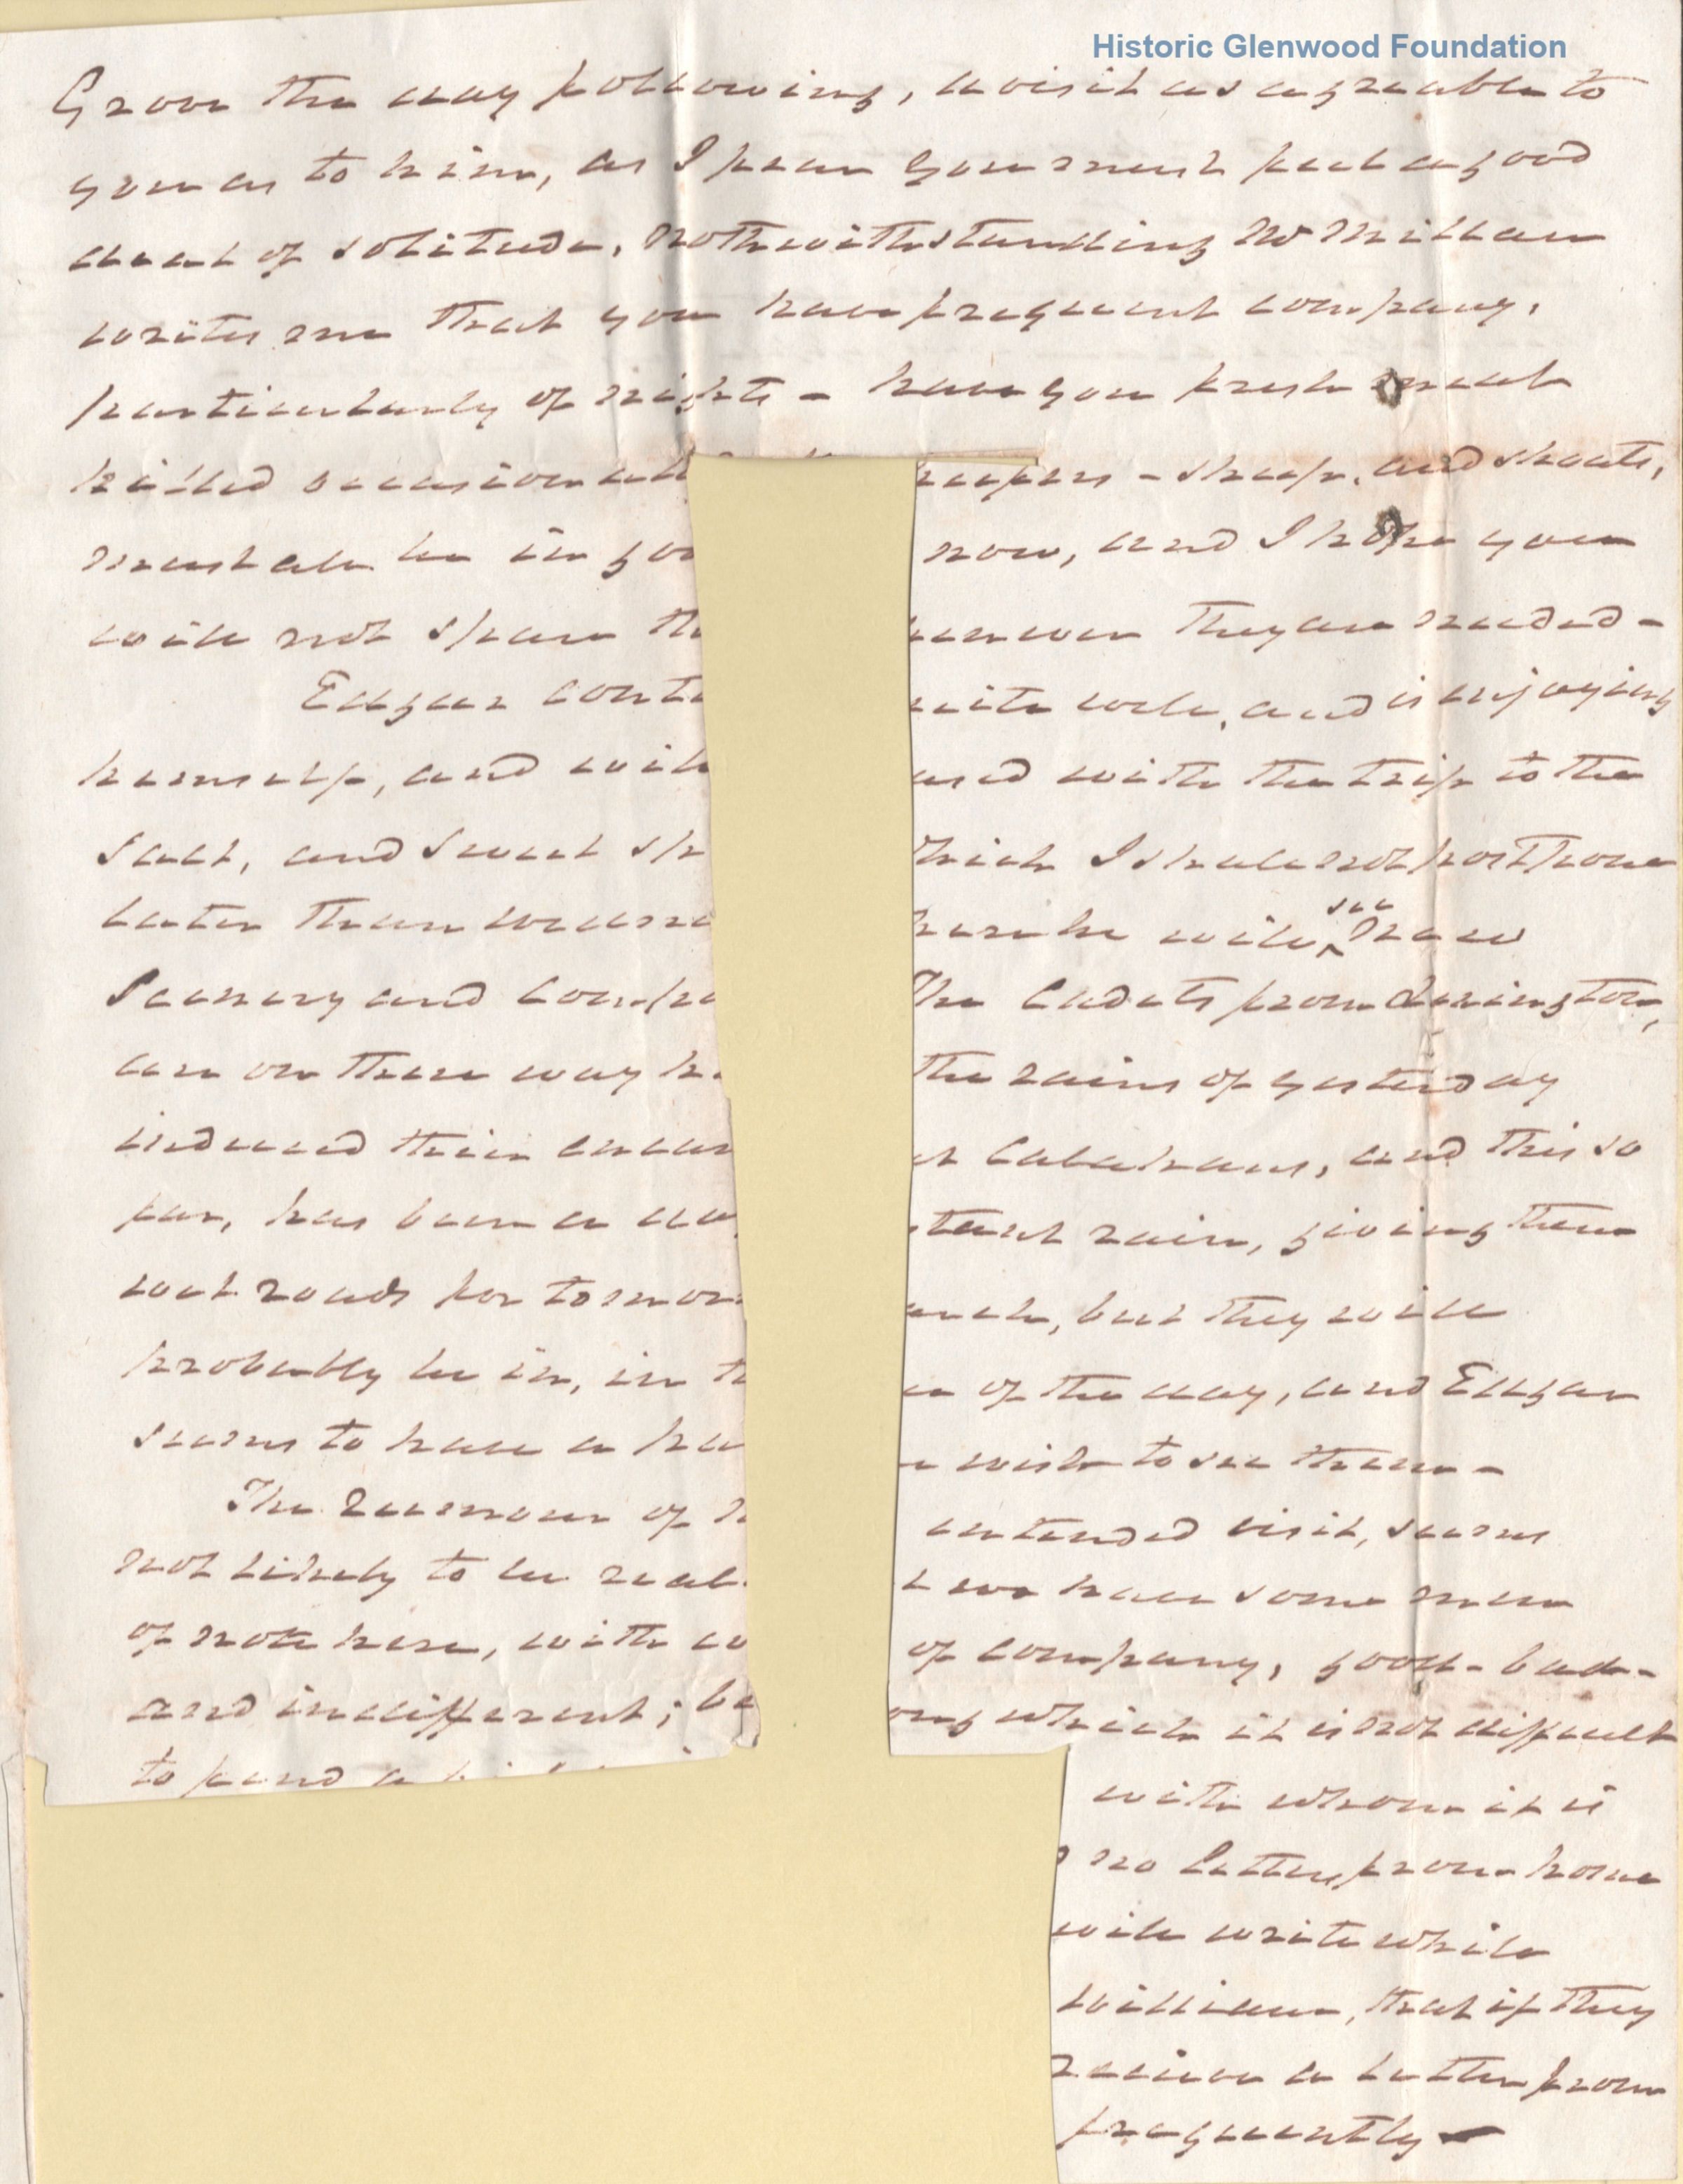 Historic Glenwood Foundation
Grove the day following, a visit as agreable to
you as to him, as I fear you must feel a good
deal of solitude, nothwithstanding Mr Millan
writes me that you have frequent company,
particularly of nights - have you fresh meat
killed occasionall keepers - sheep, and shoats,
must all be in goo now, and I hope you
will not spare th henever they are needed -
Edgar conti uite well, and is enjoying
himself, and will ased with the trip to the
Salt, and Sweet sp which I shall not postpone
later than wedne here he will see new
Scenery and compa The Cadets from Lexington,
are on there way h the rains of yesterday
induced their encam at Calahans, and this so
far, has been a da stant rain, giving them
wet roads for tomor arch, but they will
probably be in, in t e of the day, and Edgar
seems to have a wish to see them -
The Rumour of entended visit, seems
not likely to be real t we have some men
of note here, with of company, good - bad -
and indifferent; be ong which it is not difficult
to find a with whom it is
no letter from home
will write while
William, that if they
receive a letter from
frequently -